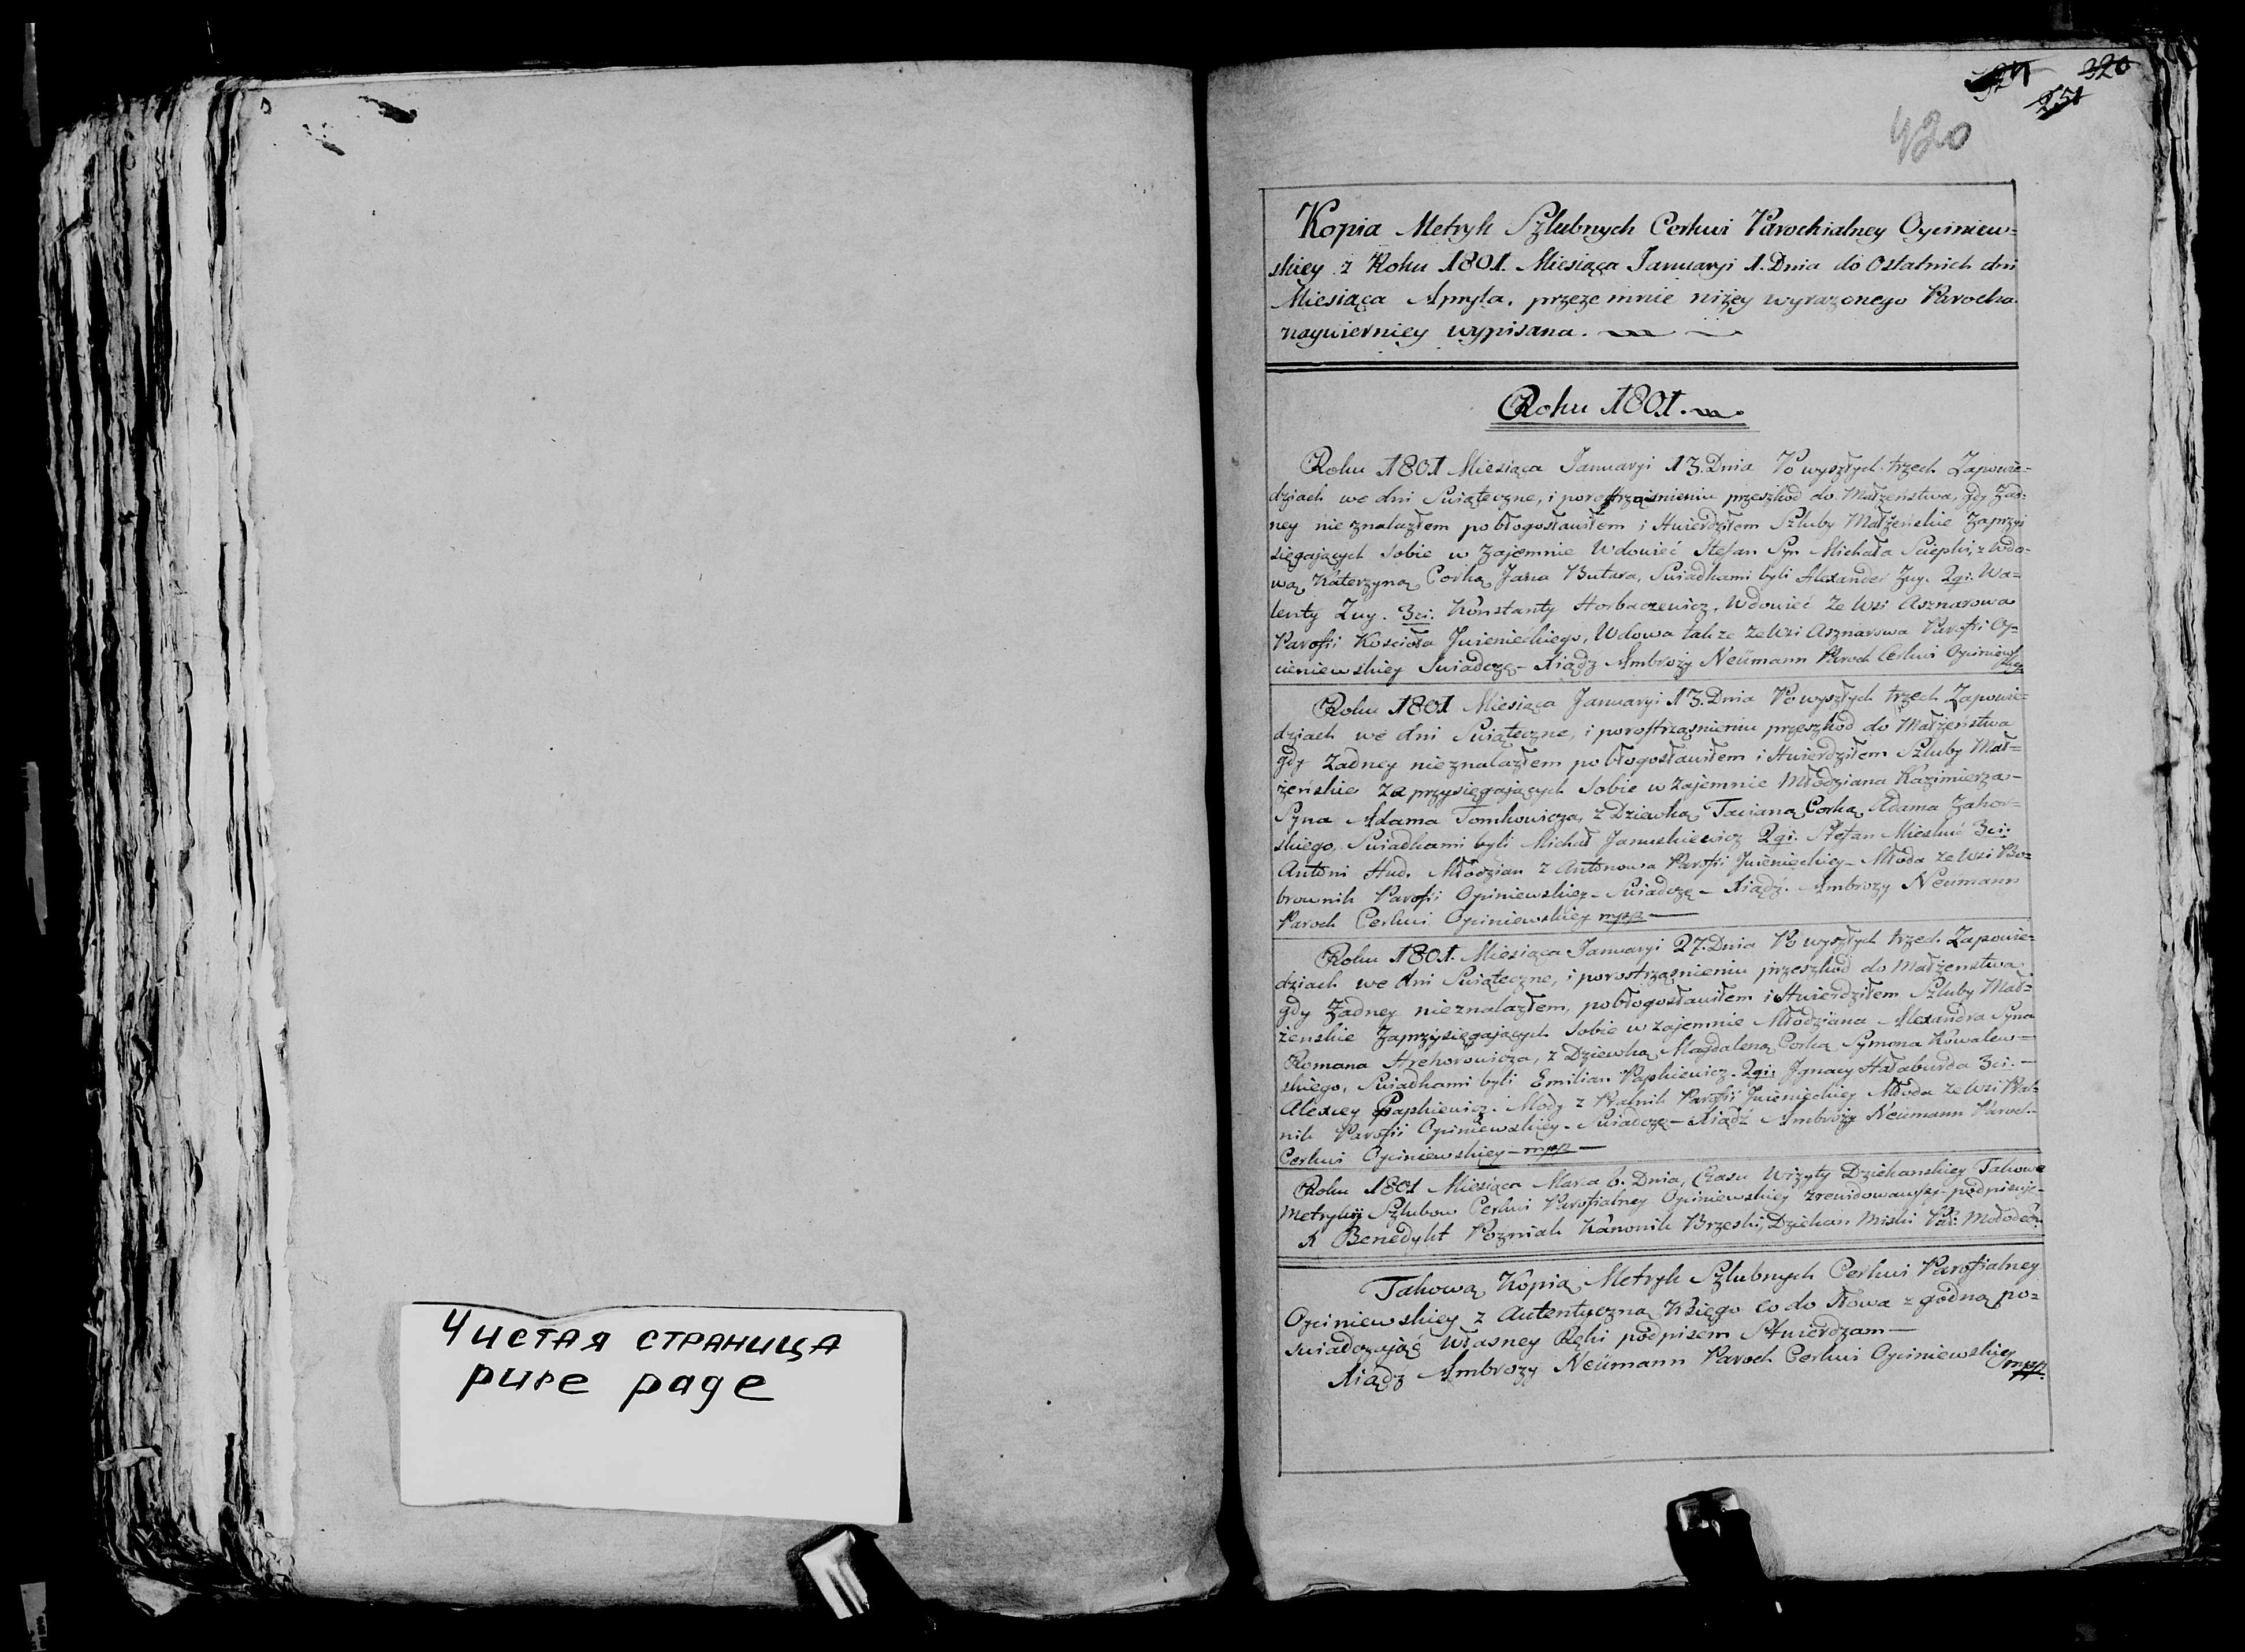 320
251
420
Kopia Metryk Szlubnych Cerkwi Parochialney Ogciniew=
skiey z Roku 1801. Miesiąca Januaryi 1. Dnia do Ostatnich dni
Miesiąca Apryla, przeze mnie niżey wyrażonego Parocha
naywierniey wypisana.
Roku 1801.
Roku 1801 Miesiąca Januaryi 13. Dnia Po wyszłych trzech Zapowie-
dziach we dni Swiąteczne, i porostrząsnieniu przeszkod do Małżeństwa, gdy Żad=
ney nie znalazłem pobłogosławiłem i Stwierdziłem Szluby Małżeńskie Zaprzy
sięgających Sobie w Zajemnie Wdowieć Stefan Syn Michała Sciepki, z Wdo-
wą Katerzyną Corką Jana Butara, Swiadkami byli Alexander Zuy. 2gi. Wa=
lenty Zuy. 3ci. Konstanty Horbaczewicz. Wdowieć Ze Wsi Asznarowa
Parofii Kościoła Jwienieckiego, Wdowa także Ze Wsi Asznarowa Parofii Og=
cieniewskiey Swiadczę - Xiądz Ambroży Neümann Paroch Cerkwi Ogciniew
skiey
Roku 1801 Miesiąca Januaryi 13. Dnia Po wyszłych trzech Zapowie=
dziach we dni Swiąteczne, i porostrząsnieniu przeszkod do Małżeństwa
gdy Żadney nieznalazłem pobłogosławiłem i Stwierdziłem Szluby Mał=
żeńskie Zaprzysięgających Sobie w Zajemnie Młodziana Kazimierza -
Syna Adama Tomkowicza, z Dziewką Tacianą Corką Adama Zahor=
skiego, Swiadkami byli Michał Januszkiewicz 2gi. Stefan Mieskuć 3ci:
Antoni Hud. Młodzian z Antonowa Parofii Jwienieckiey - Młoda ze Wsi Bo=
brownik Parofii Ogciniewskiey - Swiadczę - Xiądz. Ambroży Neümann
Paroch Cerkwi Ogciniewskiey mpp -
Roku 1801. Miesiąca Januaryi 27. Dnia Po wyszłych trzech Zapowie=
dziach we dni Swiąteczne, i porostrząsnieniu przeszkod do Małżenstwa
gdy Żadney nieznalazłem, pobłogosławiłem i Stwierdziłem Szluby Mał=
żenskie Zaprzysięgających Sobie w zajemnie Młodziana Alexandra Syna
Romana Hrehorowicza, z Dziewką Magdaleną Corką Symona Kowalew-
skiego, Swiadkami byli Emilian Papkiewicz. 2gi. Jgnacy Hałaburda 3ci. -
Alexiey Papkiewicz. Mody z Kalnik Parofii Jwienieckiey Młoda ze Wsi Kal=
nik Parofii Ogciniewskiey - Swiadczę - Xiądz Ambroży Neümann Paroch
Cerkwi Ogciniewskiey - mpp -
Roku 1801 Miesiąca Marca 6. Dnia, Czasu Wizyty Dziekanskiey Takowe
Metryky Szlubow Cerkwi Parofialney Ogciniewskiey zrewidowawszy podpisuje -
X Benedykt Pozniak Kanonik Brzeski, Dziekan Miski
Takową Kopią Metryk Szlubnych Cerkwi Parofialney
Ogciniewskiey z Autentyczną Xsięgo co do słowa zgodną po=
swiadczając Własney Ręki podpisem Stwierdzam -
Xiądz Ambroży Neümann Paroch Cerkwi Ogciniewskiey mpp.
Чистая страница
pure page